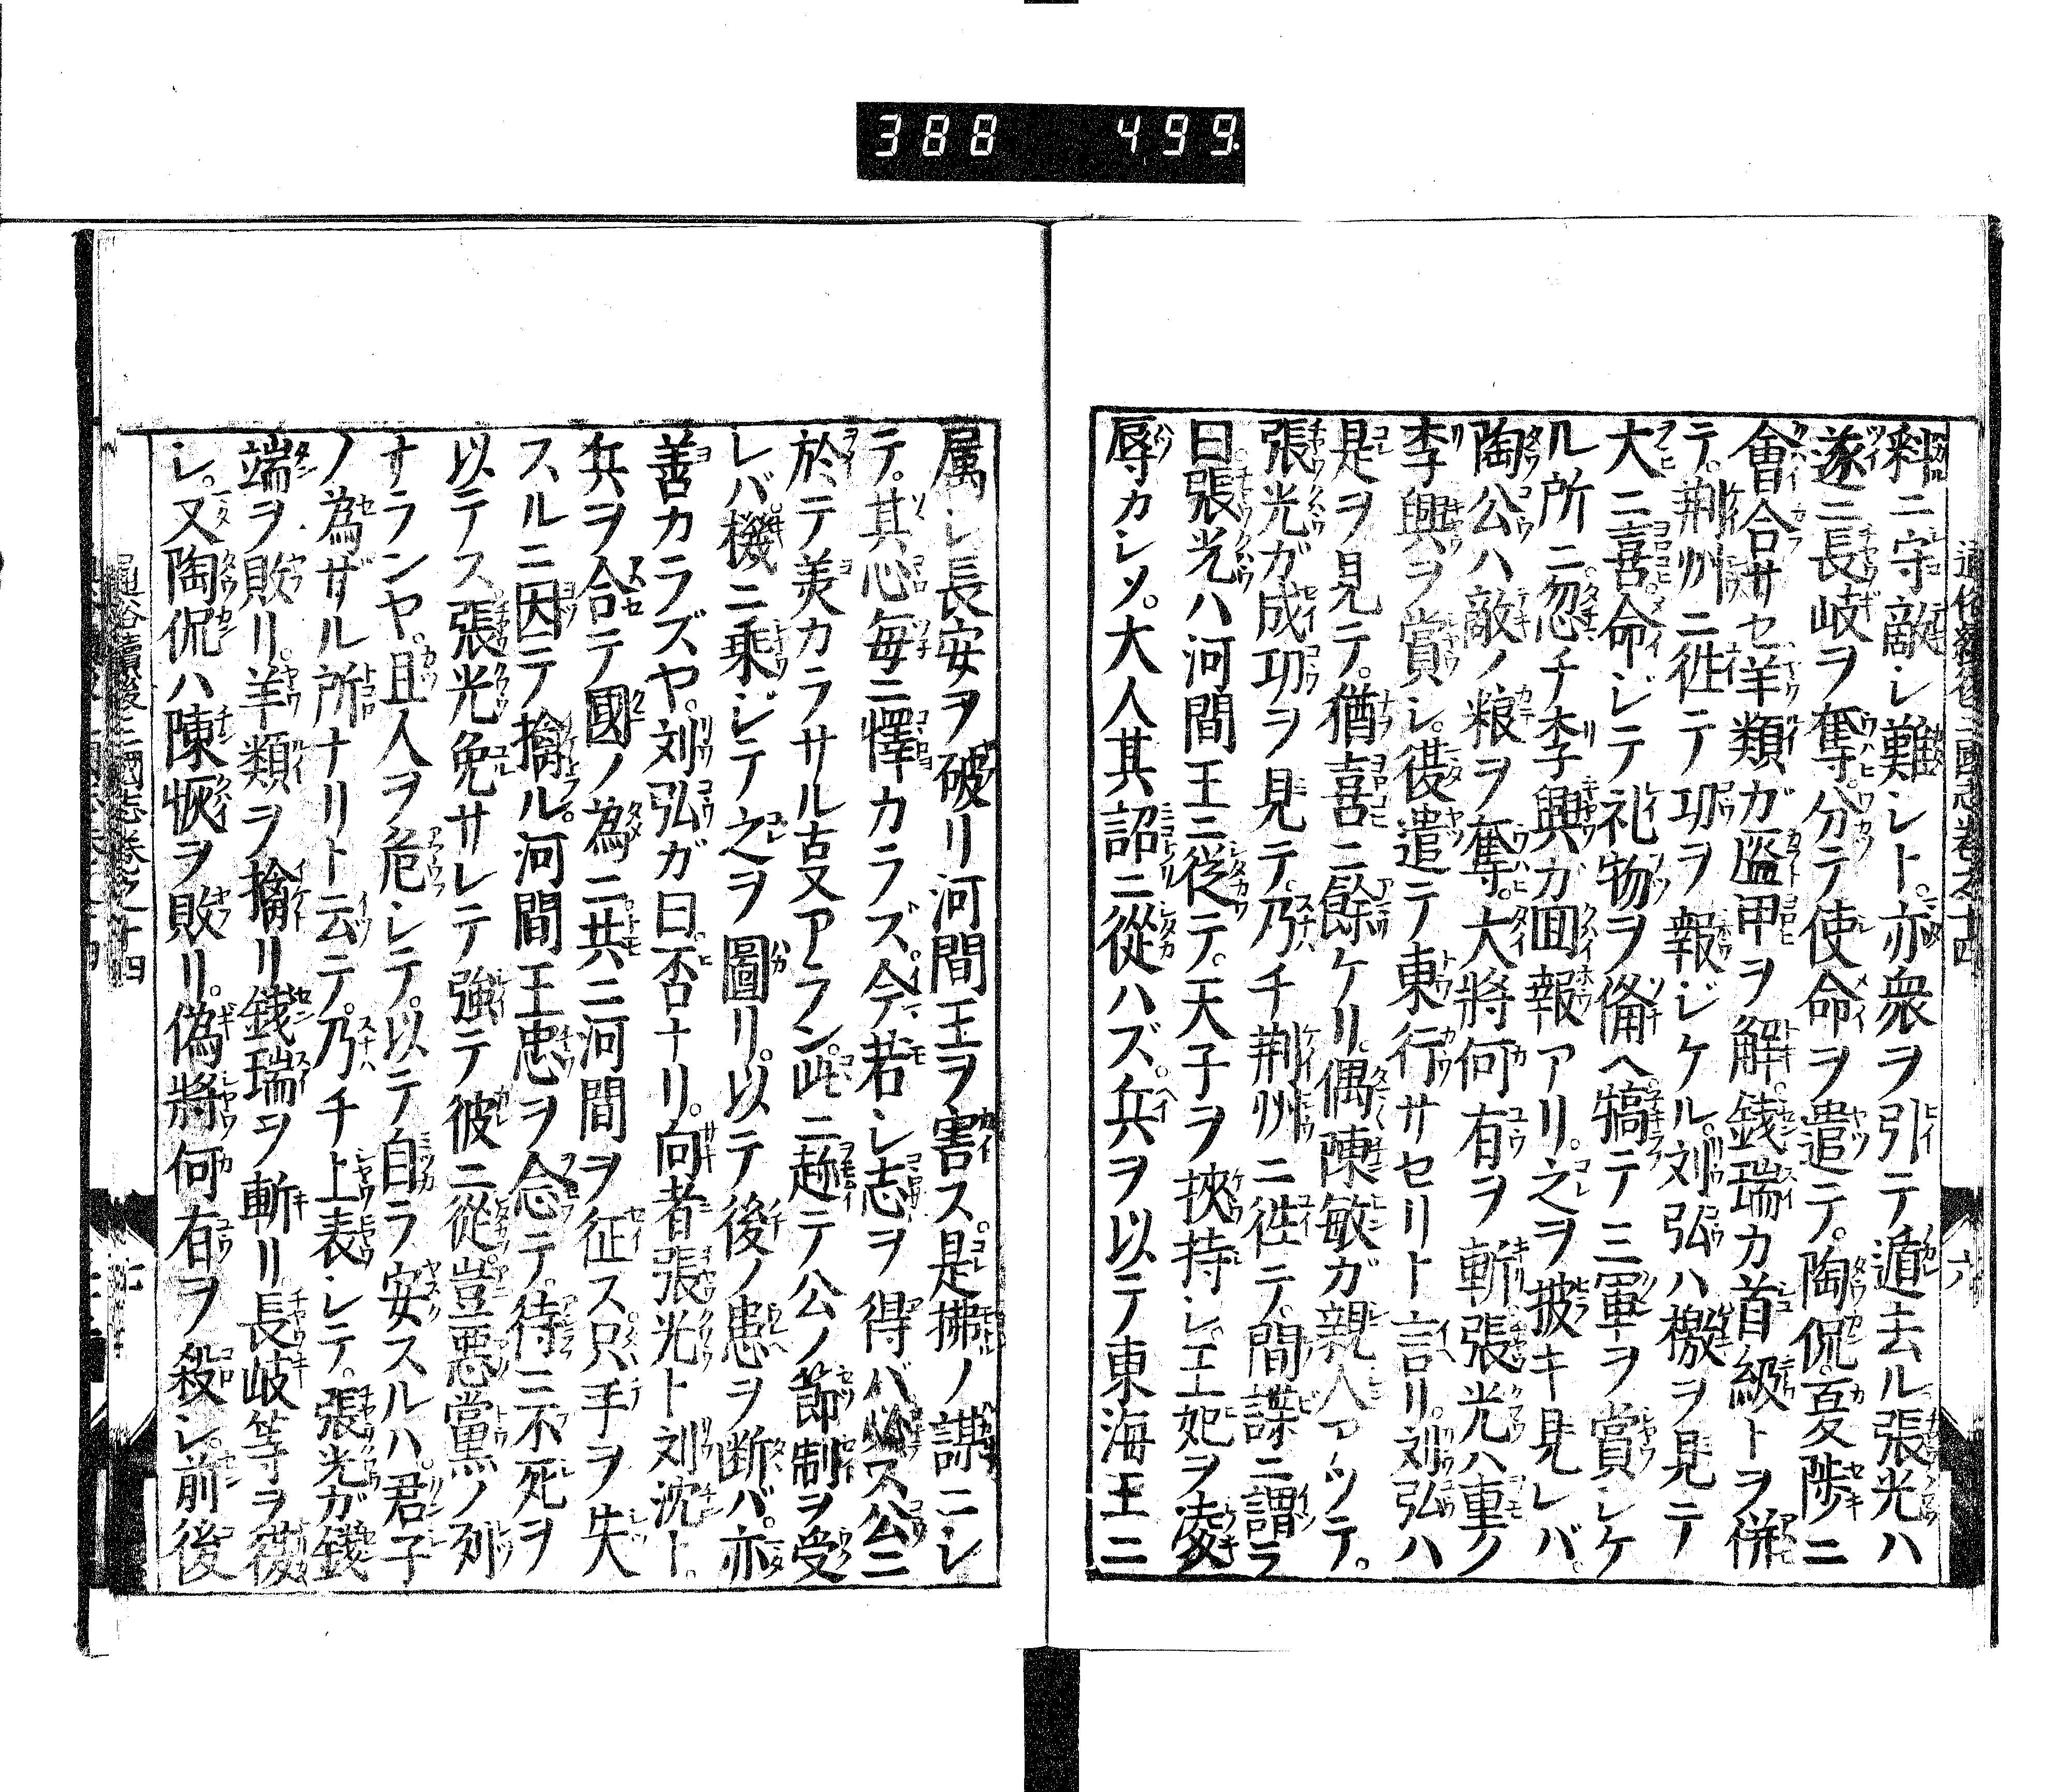 388 499.
通俗續後三國志卷之十四
六
料ニ守敵シ難シト。亦衆ヲ引テ遁去ル張光ハ
遂ニ長岐ヲ奪。分テ使命ヲ遣テ。陶侃。夏陟ニ
會合サセ羊類ガ盔甲ヲ解。錢瑞カ首級トヲ併
テ。荊州ニ徃テ功ヲ報ジケル。刘弘ハ檄ヲ見テ
大ニ喜。命ジテ礼物ヲ備ヘ。犒テ三軍ヲ賞シケ
ル所ニ。忽チ李興ガ回報アリ。之ヲ披キ見レバ。
陶公ハ敵ノ粮ヲ奪。大將何有ヲ斬。張光ハ重ク
李興ヲ賞シ。復遣テ東行サセリト言リ。刘弘ハ
是ヲ見テ。猶喜ニ餘ケリ。偶陳敏ガ親人アツテ。
張光ガ成功ヲ見テ。乃チ荊州ニ徃テ。間諜ニ謂ラ
曰。張光ハ河間王ニ從テ。天子ヲ挾持シ。王妃ヲ凌
辱カシメ。大人其詔ニ從ハズ。兵ヲ以テ東海王ニ
属シ長安ヲ破リ河間王ヲ害ス。是拂ノ謀ニシ
テ。其心毎ニ懌カラズ。今若シ志ヲ得バ必ス公ニ
於テ美カラサル㕝アラン。此ニ趂テ公ノ節制ヲ受
レバ機ニ乘ジテ之ヲ圖リ。以テ後ノ患ヲ断バ。亦
善カラズヤ。刘弘ガ曰。否ナリ。向者張光ト刘沈ト。
兵ヲ合テ國ノ為ニ共ニ河間ヲ征ス。只手ヲ失
スルニ因テ擒ル。河間王忠ヲ念テ。待ニ不死ヲ
以テス。張光免サレテ強テ彼ニ從。豈悪黨ノ列
ナランヤ。且人ヲ危シテ。以テ自ラ安スルハ。君子
ノ為ザル所ナリト云テ。乃チ上表シテ。張光ガ錢
端ヲ敗リ。羊類ヲ擒リ錢瑞ヲ斬リ。長岐等ヲ復
シ。又陶侃ハ陳恢ヲ敗リ。偽將何有ヲ殺シ。前後
通俗續後三國志卷之十四